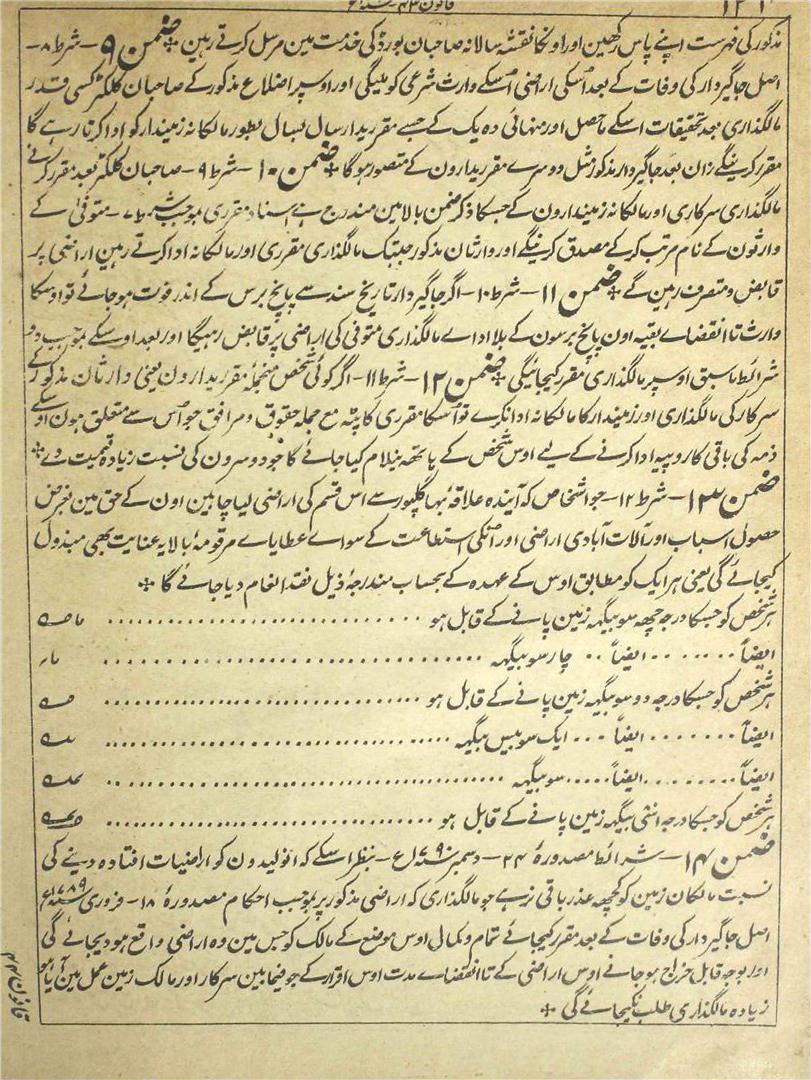 مذکور کی فہرست اپنے پاس رکھین اور اونکا نقشہ سالانہ صاحبان بورڈ کی خدمت مین مرسل کرتے رہین ❊ ضمن ۹ - شرط ۸ -
اصل جاگیردار کی وفات کے بعد اُسکی اراضی اُسکے وارث شرعی کو ملیگی اور اوسپر اضلاع مذکور کے صاحبان کلکٹر کسی قدر
مالگذاری بعد تحقیقات اسکے ماحصل اور منہائی دہ یک کے جسے مقرریدار سال بسال بطور مالکانہ زمیندار کو ادا کرتا رہے گا
مقرر کرینگے زان بعد جاگیردار مذکور مثل دوسرے مقرریدارون کے متصور ہوگا ❊ ضمن ۱۰ - شرط ۹ - صاحبان کلکٹر بعد مقرر کرنے
مالگذاری سرکاری اور مالکانہ زمیندارون کے جسکا ذکر ضمن بالا مین مندرج ہے اسناد مقرری بموجب شرط ۷ - متوفی کے
وارثون کے نام مرتب کرکے مصدق کرینگے اور وارثان مذکور جبتک مالگذاری مقرری اور مالکانہ ادا کرتے رہین اراضی پر
قابض و متصرف رہین گے ❊ ضمن ۱۱ - شرط ۱۰ - اگر جاگیردار تاریخ سند سے پانچ برس کے اندر فوت ہو جائے تو اوسکا
وارث تا انقضاے بقیہ اون پانچ برسون کے بلا اداے مالگذاری متوفی کی اراضی پر قابض رہیگا اور بعد اوسکے بموجب
شرائط ماسبق اوسپر مالگذاری مقرر کیجائیگی ❊ ضمن ۱۲ - شرط ۱۱ - اگر کوئی شخص منجملہ مقرریدارون یعنی وارثان مذکور کے
سرکار کی مالگذاری اور زمیندار کا مالکانہ ادا نکرے تو اُسکا مقرری کا پٹہ مع جملہ حقوق و مرافق جو اُس سے متعلق ہون اوسکے
ذمہ کی باقی کا روپیہ ادا کرنے کے لیے اوس شخص کے ہاتھ نیلام کیا جائے گا جو دوسرون کی نسبت زیادہ قیمت دے ❊
ضمن ۱۳ - شرط ۱۲ - جو اشخاص کہ آیندہ علاقۂ بھاگلپور سے اس قسم کی اراضی لیا چاہین اون کے حق مین بغرض
حصول اسباب اور آلات آبادی اراضی اور اُنکی استطاعت کے سواے عطایاے مرقومۂ بالا یہ عنایت بھی مبذول
کیجائے گی یعنی ہر ایک کو مطابق اوس کے عہدہ کے بحساب مندرجۂ ذیل نقد انعام دیا جائے گا ❊
ہر شخص کو جسکا درجہ چھہ سو بیگہہ زمین پانے کے قابل ہو
ایضاً ایضاً چار سو بیگہہ
ہر شخص کو جسکا درجہ دو سو بیگہہ زمین پانے کے قابل ہو
ایضاً ایضاً ایک سو بیس بیگہہ
ایضاً ایضاً سو بیگہہ
ہر شخص کو جسکا درجہ اسّی بیگہہ زمین پانے کے قابل ہو
ضمن ۱۴ - شرائط مصدورۂ ۲۴ - دسمبر سنہ ۱۷۹۰ع - بنظر اسکے کہ انولیدون کو اراضیات افتادہ دینے کی
نسبت مالکان زمین کو کچھہ عذر باقی نرہے جو مالگذاری کہ اراضی مذکور پر بموجب احکام مصدورۂ ۱۸ - فروری سنہ ۱۷۸۹ع
اصل جاگیردار کی وفات کے بعد مقرر کیجائے تمام و کمال اوس موضع کے مالک کو جس مین وہ اراضی واقع ہو دیجائے گی
اور بوجہ قابل خراج ہو جانے اوس اراضی کے تا انقضاے مدت اوس اقرار کے جو فیمابین سرکار اور مالک زمین عمل مین آیا ہو
زیادہ مالگذاری طلب نکیجائے گی ❊